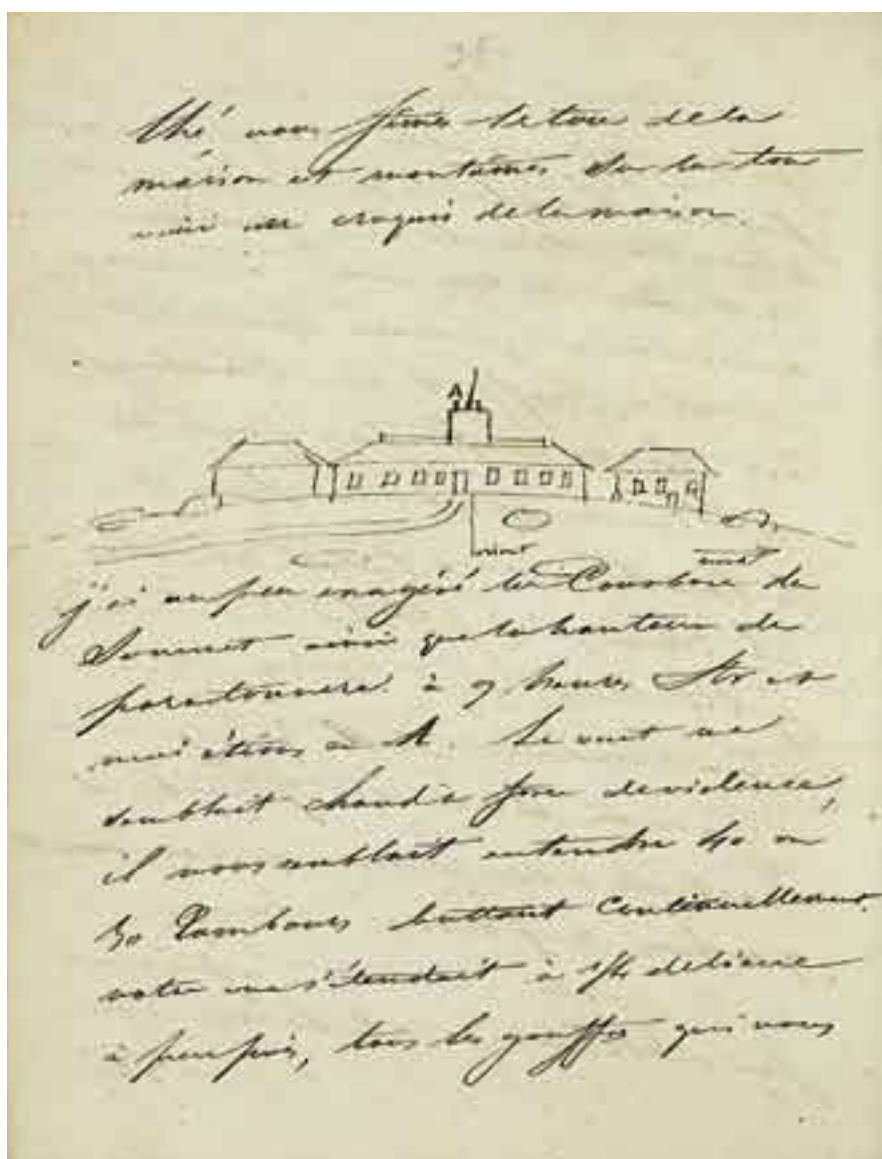 thé nous fîmes le tour de la
maison et montâmes sur la tour
voici un croquis de la maison.
A
j'ai un peu exagéré la Courbure du
Sommet ainsi que la hauteur du
paratonnerre à 9 heures et
nous étions en A. Le vent ne
semblait de violence,
il nous semblait entendre 40 ou
50 Tambours battant continuellement.
notre vue s'étendait à 1/4 de lieue
à peu près, tous les gouffres qui nous